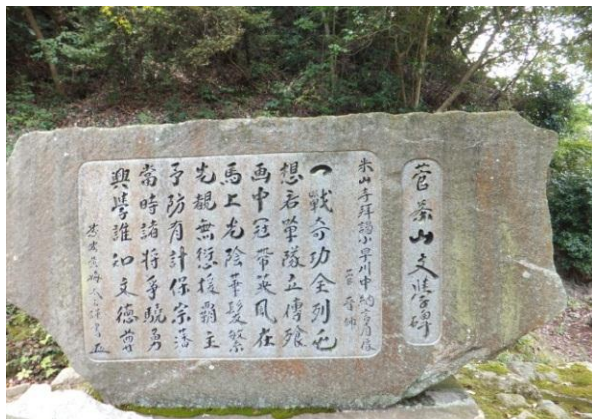 菅茶山文學碑
米山寺拜謁小早川中納言肖像
菅晋帥
一戰奇功全列屯
想君單隊立傳飱
画中冠帶英風在
馬上光陰華髮繁
先覩無愆援霸主
予防有計保宗藩
當時諸将爭驍勇
興學誰知文德尊